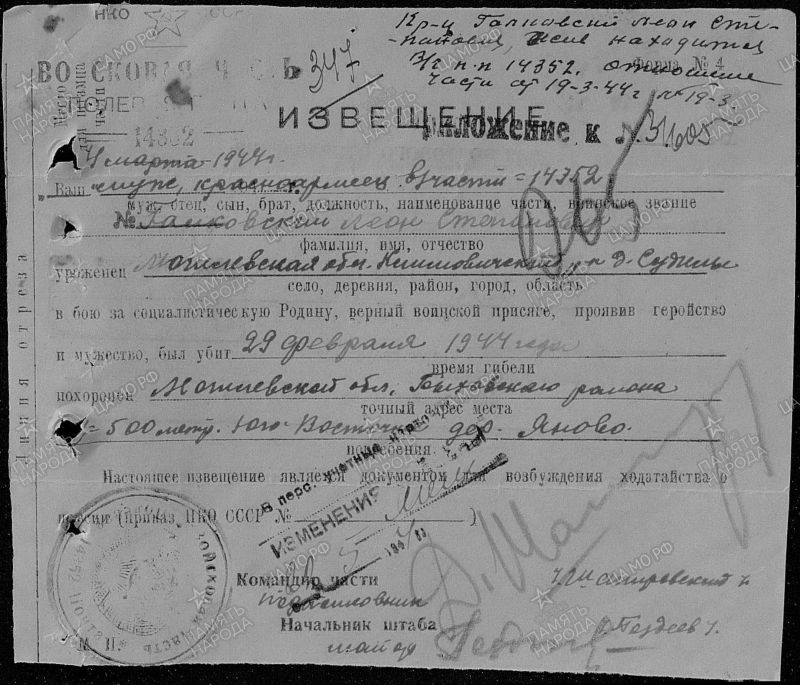 НКО
Кр-ц Галковский Леон Сте-
панович, жив находится
В/ч п.п 14352. отношение
части от 19-3-44г № 19-3.
Форма № 4
ВОЙСКОВАЯ Ч СТЬ
347
Место
для штампа
части
ПОЛЕВ
14352
ИЗВЕЩЕНИЕ
Приложение к №
4 марта 1944г.
Ваш муж, красноармеец в/части =14352
муж, отец, сын, брат, должность, наименование части, воинское звание
№ Галковский Леон Степанович
фамилия, имя, отчество
уроженец Могилевская обл. Климовичский р-н д. Судилы
село, деревня, район, город, область
в бою за социалистическую Родину, верный воинской присяге, проявив геройство
и мужество, был убит 29 февраля 1944 года
время гибели
похоронен Могилевской обл, Быховского района
точный адрес места
= 500 метр. Юго-Восточн. дер. Яново.
погребения.
Настоящее извещение является документом для возбуждения ходатайства о
пенсии (приказ НКО СССР № )
В перс. учетные
ИЗМЕНЕНИЯ
194
Линия отреза
ВОЙСКОВАЯ ЧАСТЬ
Командир части
подполковник
Начальник штаба
майор
М П